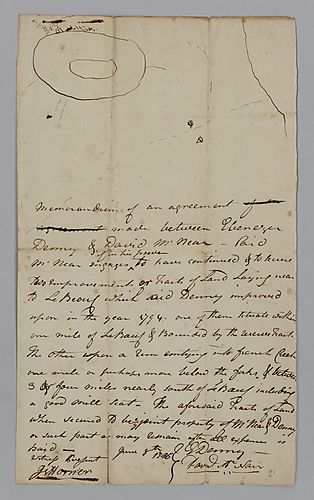 Memorandum of an agreement of an
agreement made between Ebenezer
Denny & David McNear – Said
if in his power
McNear engages to have continued & to secure
two improvements or Tracts of Land Laying near
to LeBeouf which said Denney improved
upon in the year 1794. one of them situate within
one mile of LeBeuf & Bounded by the reserve tract
The other upon a Run emptying into french Creek
one mile or perhaps more below the forks, & between
3 & four miles nearly south of LeBeuf including
a good mill seat. The aforesaid Tracts of Land
when secured to be joint property of McNear & Denny
or such part as may remain after all expence is
paid –
June
E Denny
witness present
David McNair